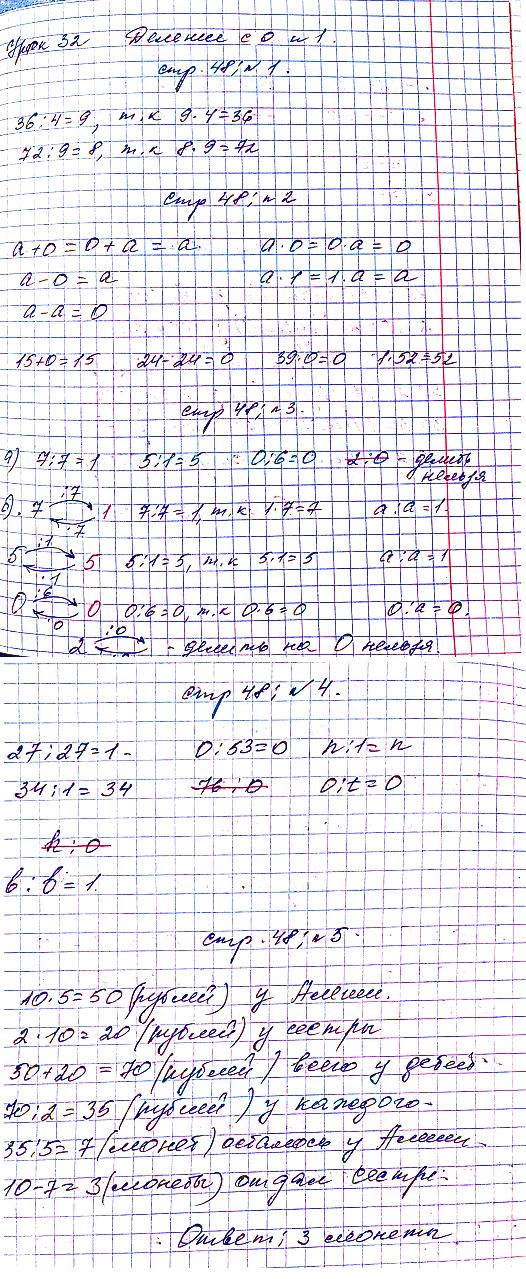 Урок 32 Деление с 0 и 1.
стр. 48; №1.
36:4=9, т.к 9·4=36
72:9=8, т.к 8·9=72
стр 48; №2
a+0=0+a=a a·0=0·a=0
a-0=a a·1=1·a=a
a-a=0
15+0=15 24-24=0 39·0=0 1·52=52
стр 48; №3.
а) 7:7=1 5:1=5 0:6=0 2:0 - делить
нельзя
:7
б). 7 1 7:7=1, т.к 1·7=7 a:a=1
·7
:1
5 5 5:1=5, т.к 5·1=5 a:a=1
·1
:6
0 0 0:6=0, т.к 0·6=0 0:a=0.
·0
:0
2 - делить на 0 нельзя.
стр 48; №4.
27:27=1. 0:63=0 n:1=n
34:1=34 76:0 0:t=0
k:0
b:b=1.
стр. 48; №5.
10·5=50 (рублей) у Алеши.
2·10=20 (рублей) у сестры
50+20=70 (рублей) всего у детей.
70:2=35 (рублей) у каждого.
35:5=7 (монет) осталось у Алеши.
10-7=3 (монеты) отдал сестре.
Ответ: 3 монеты